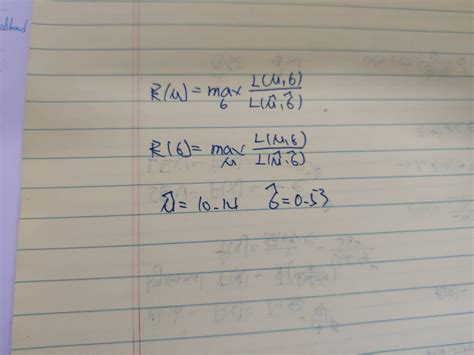 R(μ) = max_σ L(μ,σ) / L(μ̂,σ̂)
R(σ) = max_μ L(μ,σ) / L(μ̂,σ̂)
μ̂ = 10.14 σ̂ = 0.53